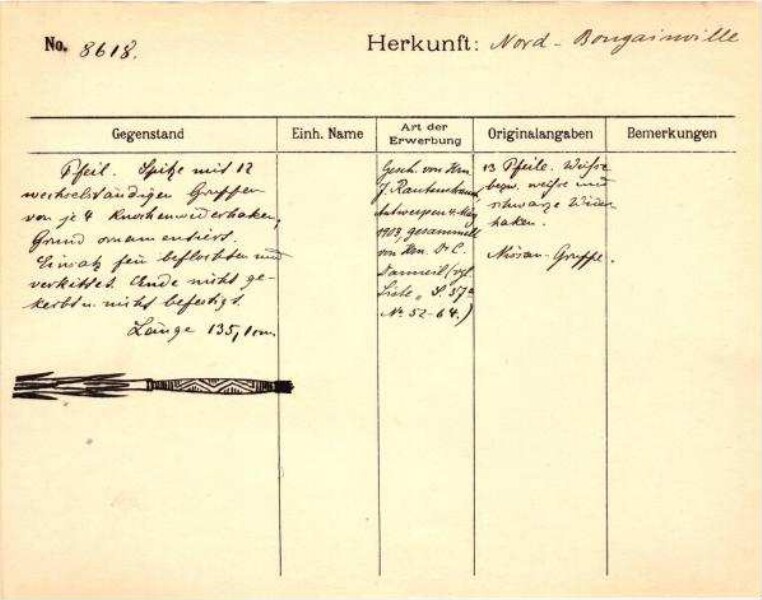 No. 8618.
Herkunft: Nord-Bougainville
Gegenstand
Einh. Name
Art der Erwerbung
Originalangaben
Bemerkungen
Pfeil. Spitze mit 12
wechselständigen Gruppen
von je 4 Knochenwiderhaken,
Grund ornamentiert.
Einsatz fein beflochten und
verkittet. Ende nicht ge-
kerbt u. nicht befestigt.
Länge 135,1 cm.
Gesch. von Hrn.
J. Rautenstrauch,
Antwerpen 4. März
1903, gesammelt
von Hrn. Dr C.
Danneil (vgl.
Liste, S. 57a
No 52-64.)
13 Pfeile. Weisse
bezw. weisse und
schwarze Wider
haken.
Nissan-Gruppe.